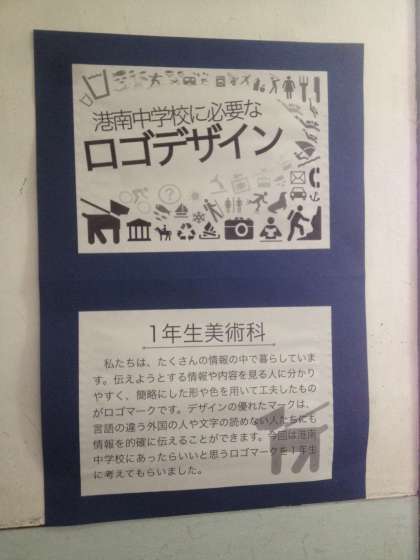 港南中学校に必要な
ロゴデザイン
1年生美術科
私たちは、たくさんの情報の中で暮らしていま
す。伝えようとする情報や内容を見る人に分かり
やすく、簡略にした形や色を用いて工夫したもの
がロゴマークです。デザインの優れたマークは、
言語の違う外国の人や文字の読めない人たちにも
情報を的確に伝えることができます。今回は港南
中学校にあったらいいと思うロゴマークを１年生
に考えてもらいました。